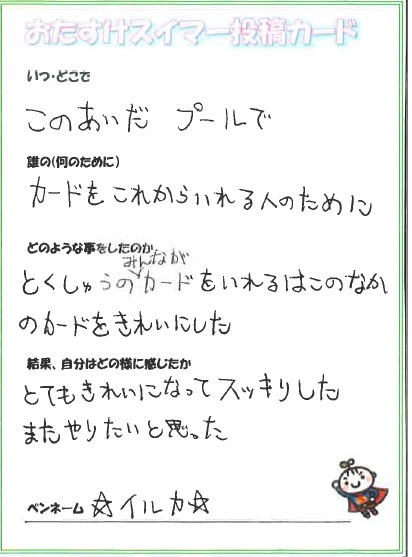 おたすけスイマー投稿カード
いつ・どこで
このあいだ プールで
誰の(何のために)
カードをこれからいれる人のために
どのような事をしたのか
みんなが
とくしゅうのカードをいれるはこのなか
のカードをきれいにした
結果、自分はどの様に感じたか
とてもきれいになってスッキリした
またやりたいと思った
ペンネーム ☆イルカ☆